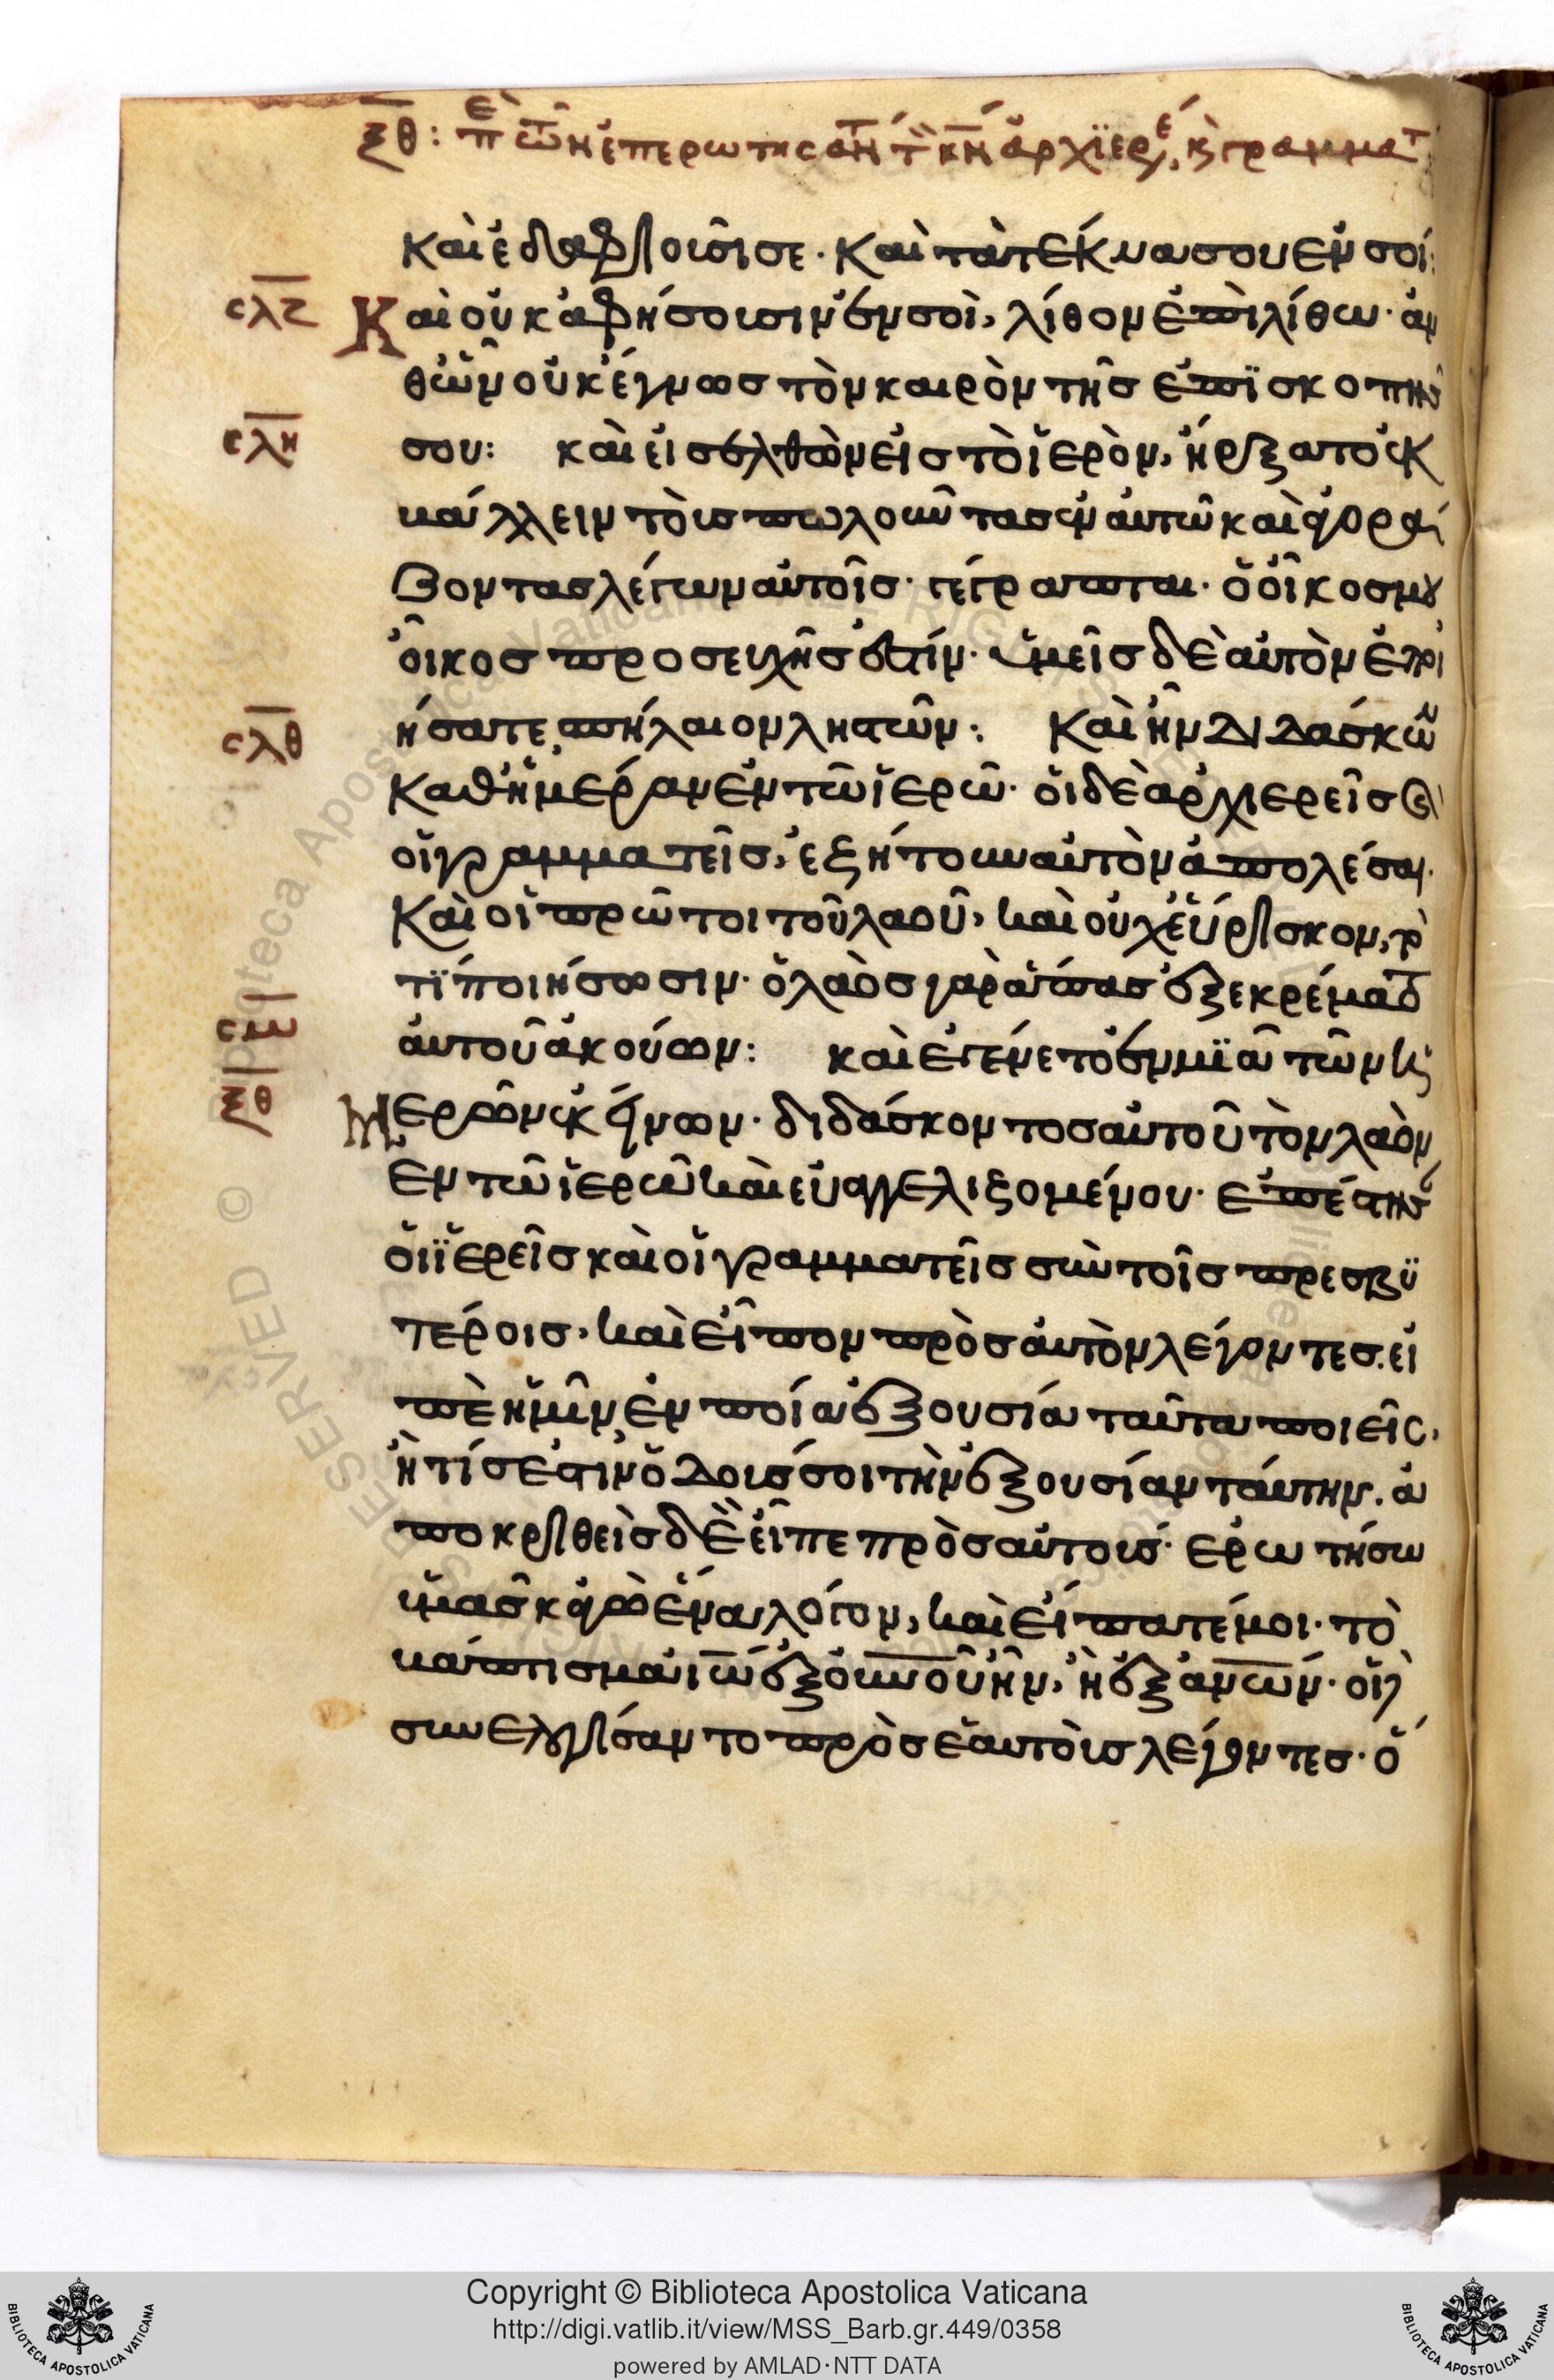 ξθ: πε τῶν ἐπερωτησάντ τ κν ἀρχϊερέ, κ γραμματ
καὶ ἐδαφιοῦσι σε· καὶ τὰ τέκνα σου ἐν σοί:
σλζ Καὶ οὐκ ἀφήσουσιν ἐν σοὶ, λίθον ἐπὶ λίθω· ἀν
θὧν οὐκ ἔγνωσ τὸν καιρὸν τῆσ ἐπϊσκοπησ
σλη σου: καὶ εἰσελθὼν εἰσ τὸ ἱερὸν, ἤρξατο ἐκ
βάλλειν τοὺσ πωλοῦντασ ἐν αὐτῶ καὶ ἀγορά
ζοντασ λέγων αὐτοῖσ· γέγραπται· ὁ οἶκοσ μου
οἶκοσ προσευχῆσ ἐστίν· ὑμεῖσ δὲ αὐτὸν ἐποι
ήσατε, σπήλαιον ληστῶν: Καὶ ἦν διδάσκων
σλθ
καθἡμέραν ἐν τῶ ἱερῶ· οἱ δὲ ἀρχιερεῖσ καὶ
οἱ γραμματεῖσ, ἐζήτουν αὐτὸν ἀπολέσαι·
καὶ οἱ πρῶτοι τοῦ λαοῦ, καὶ οὐχ εὕρισκον, τὸ
τϊ ποιήσωσιν· ὁ λαὸσ γὰρ ἅπασ ἐξεκρέματο
σμ αὐτοῦ ἀκούων: καὶ ἐγένετο ἐν μϊᾶ τῶν ἡ
ξθ μερῶν ἐκείνων· διδάσκοντοσ αὐτοῦ τὸν λαὸν
ἐν τῶ ἱερῶ καὶ εὐαγγελιζομένου· ἐπέστησαν
οἱ ἱερεῖσ καὶ οἱ γραμματεῖσ σὺν τοῖσ πρεσβϋ
τέροισ, καὶ εἶπον πρὸσ αὐτὸν λέγοντεσ. εἰ
πὲ ἡμῖν ἐν ποία ἐξουσία ταῦτα ποιεῖσ,
ἢ τίσ ἐστιν ὁ δούσ σοι τὴν ἐξουσίαν ταύτην. ἀ
ποκριθεὶσ δὲ εἶπε πρὸσ αὐτούσ· ἐρωτήσω
ὑμᾶσ κἀγὼ ἕνα λόγον, καὶ εἴπατέ μοι· τὸ
βάπτισμα ἰῶ ἐξ οὐνοῦ ἦν, ἢ ἐξ ἀνῶν· οἱ δὲ
συνελογίσαντο πρὸσ ἑαυτοὺσ λέγοντεσ· ὅ
Copyright © Biblioteca Apostolica Vaticana
http://digi.vatlib.it/view/MSS_Barb.gr.449/0358
powered by AMLAD·NTT DATA
BIBLIOTECA APOSTOLICA VATICANA
BIBLIOTECA APOSTOLICA VATICANA